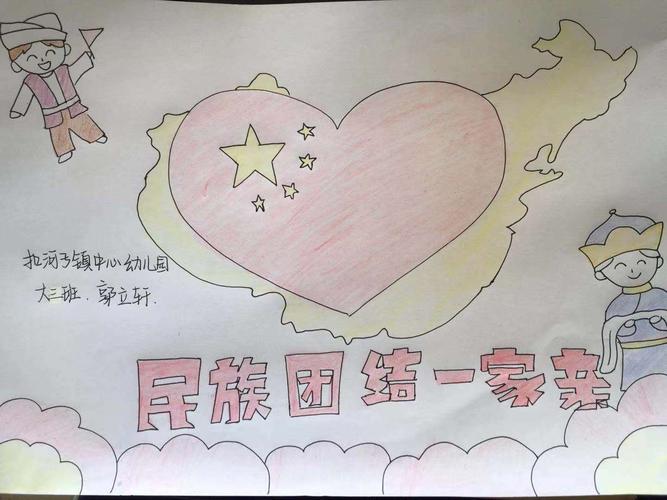 拉河子镇中心幼儿园
大三班.郭立轩.
民族团结一家亲